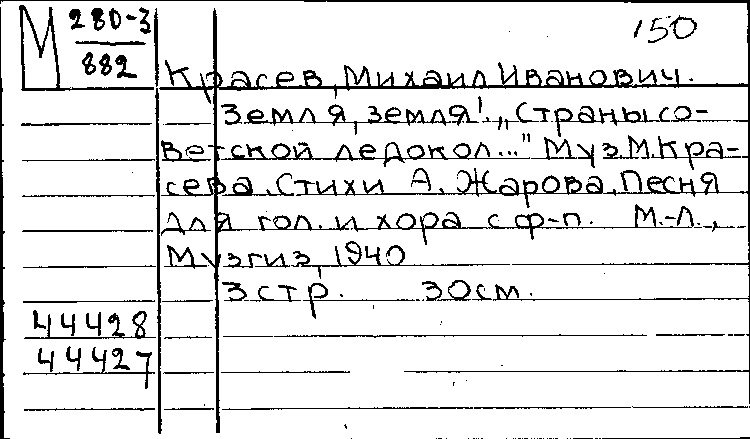 М 280-3
882
150
Красев, Михаил Иванович.
Земля, земля! „Страны со-
ветской ледокол..." Муз. М. Кра-
сева. Стихи А. Жарова. Песня
для гол. и хора с ф-п. М.-Л.,
Музгиз, 1940
3 стр. 30 см.
44428
44427